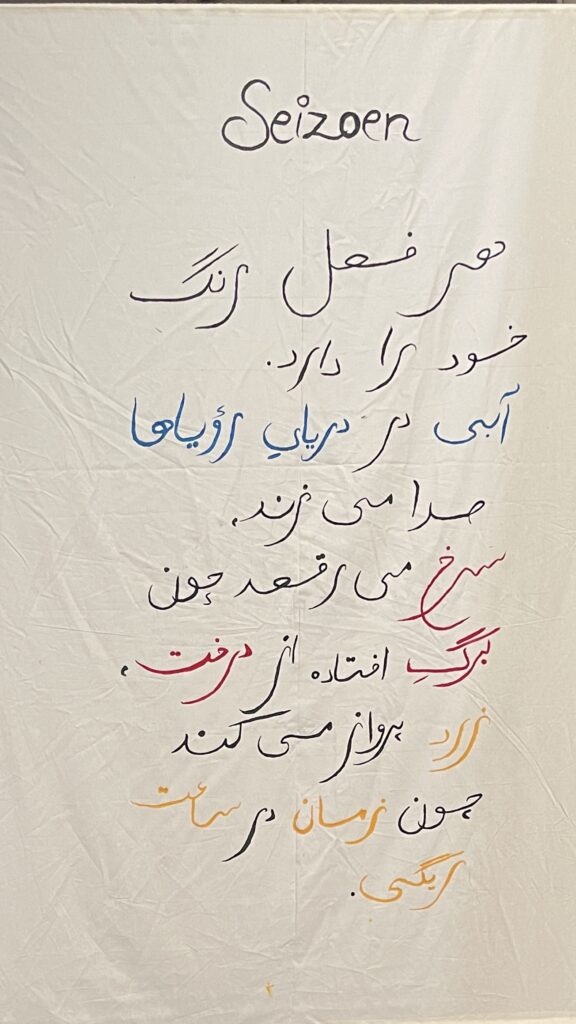 Seizoen
هر فصل رنگ
خود را دارد.
آبی در دریایِ رؤیاها
صدا می زند،
سرخ می رقصد چون
برگِ افتاده از درخت،
زرد پرواز می کند
چون زمان در سائت
ریگی.
۴